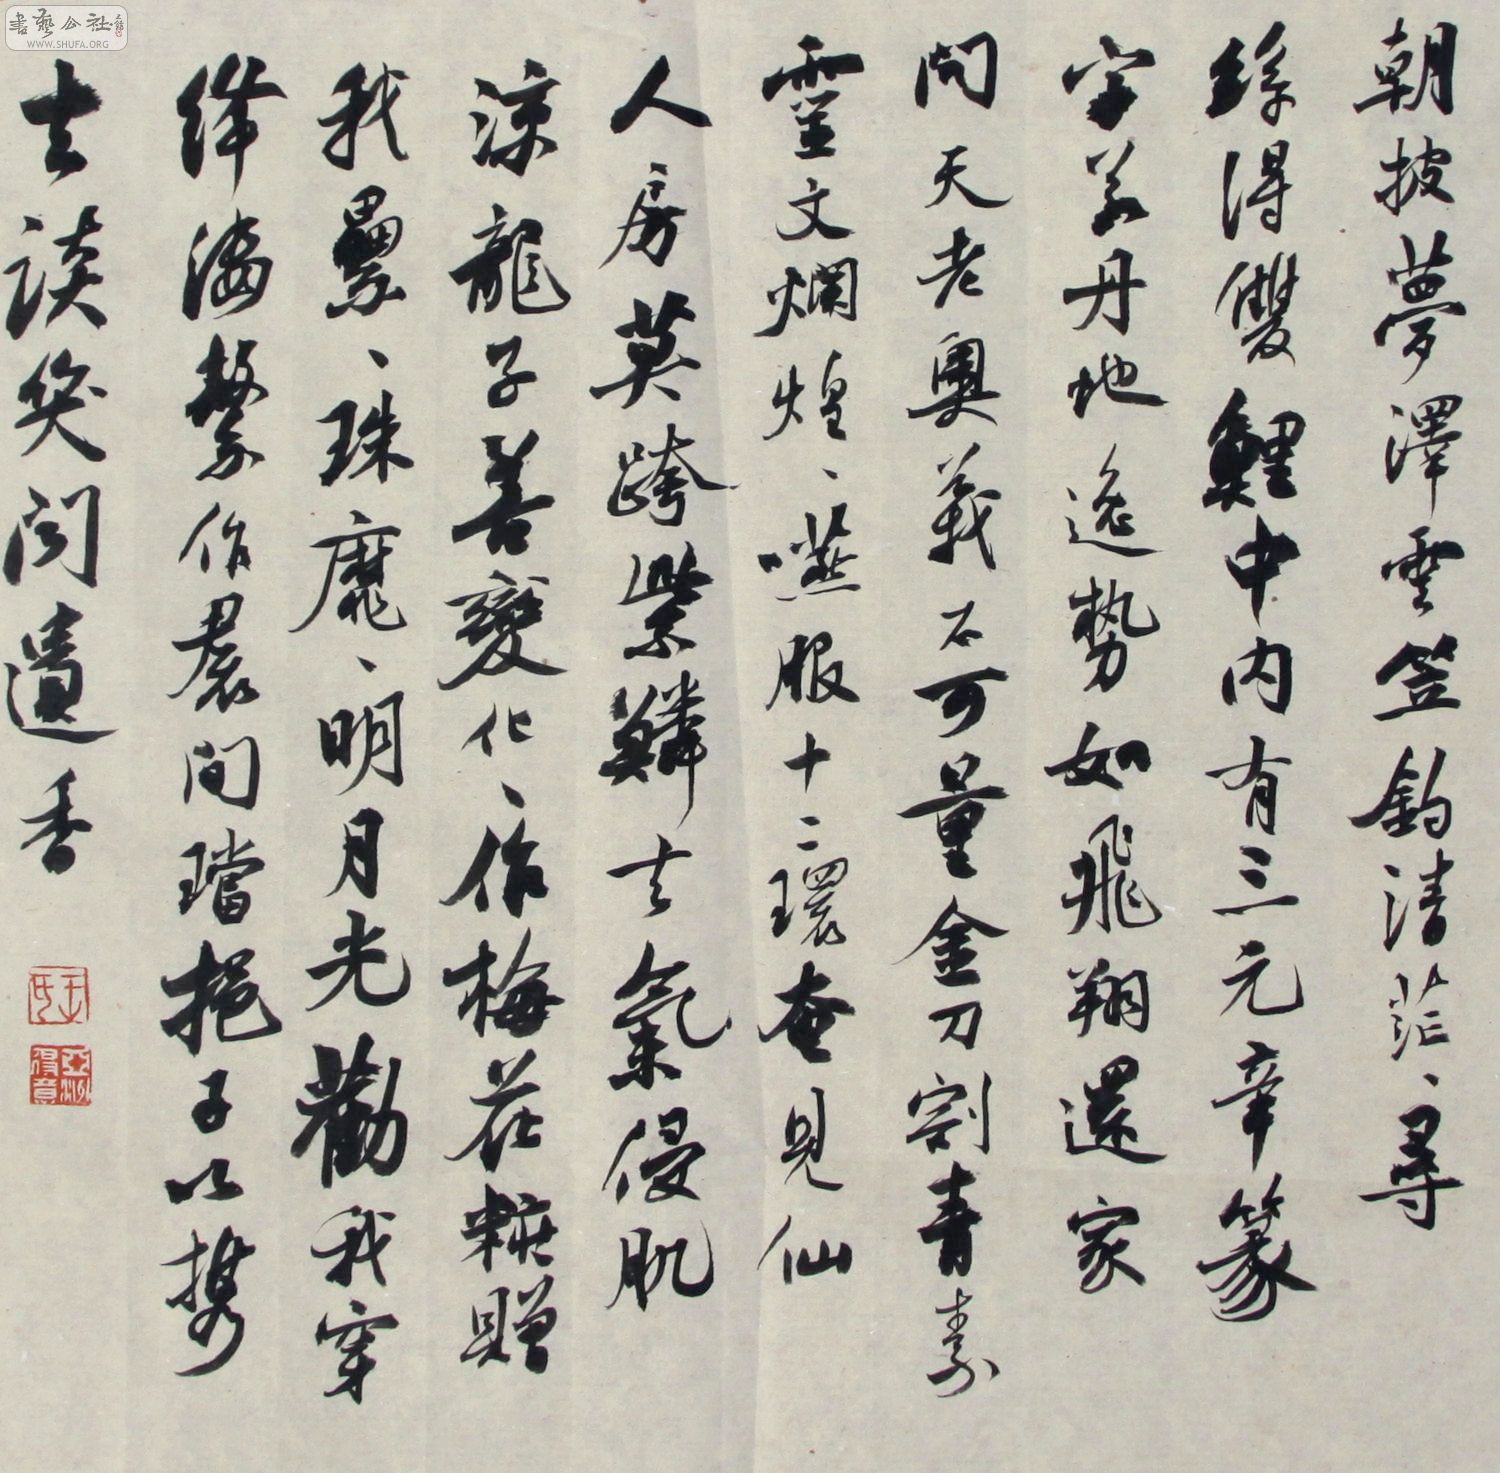 朝披夢澤雲笠釣清茫、尋
絲得雙鯉中內有三元章篆
字若丹地逸勢如飛翔還家
問天老奧義不可量金刀割青素
靈文爛煌、嚥服十二環奄見仙
人房莫跨紫鱗去氣侵肌
涼龍子善變化、作梅花糚贈
我纍、珠靡、明月光勸我穿
絳縷繫作裙間璫挹子以攜
去談笑聞遺香
書藝公社
WWW.SHUFA.ORG